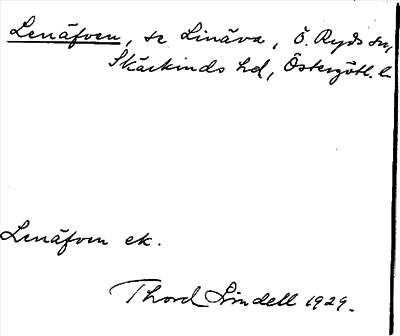 Lenäfven, se Linäva, Ö. Ryds sn,
Skärkinds hd, Östergötl. l.
Lenäfven ek.
Thord Lindell 1929.